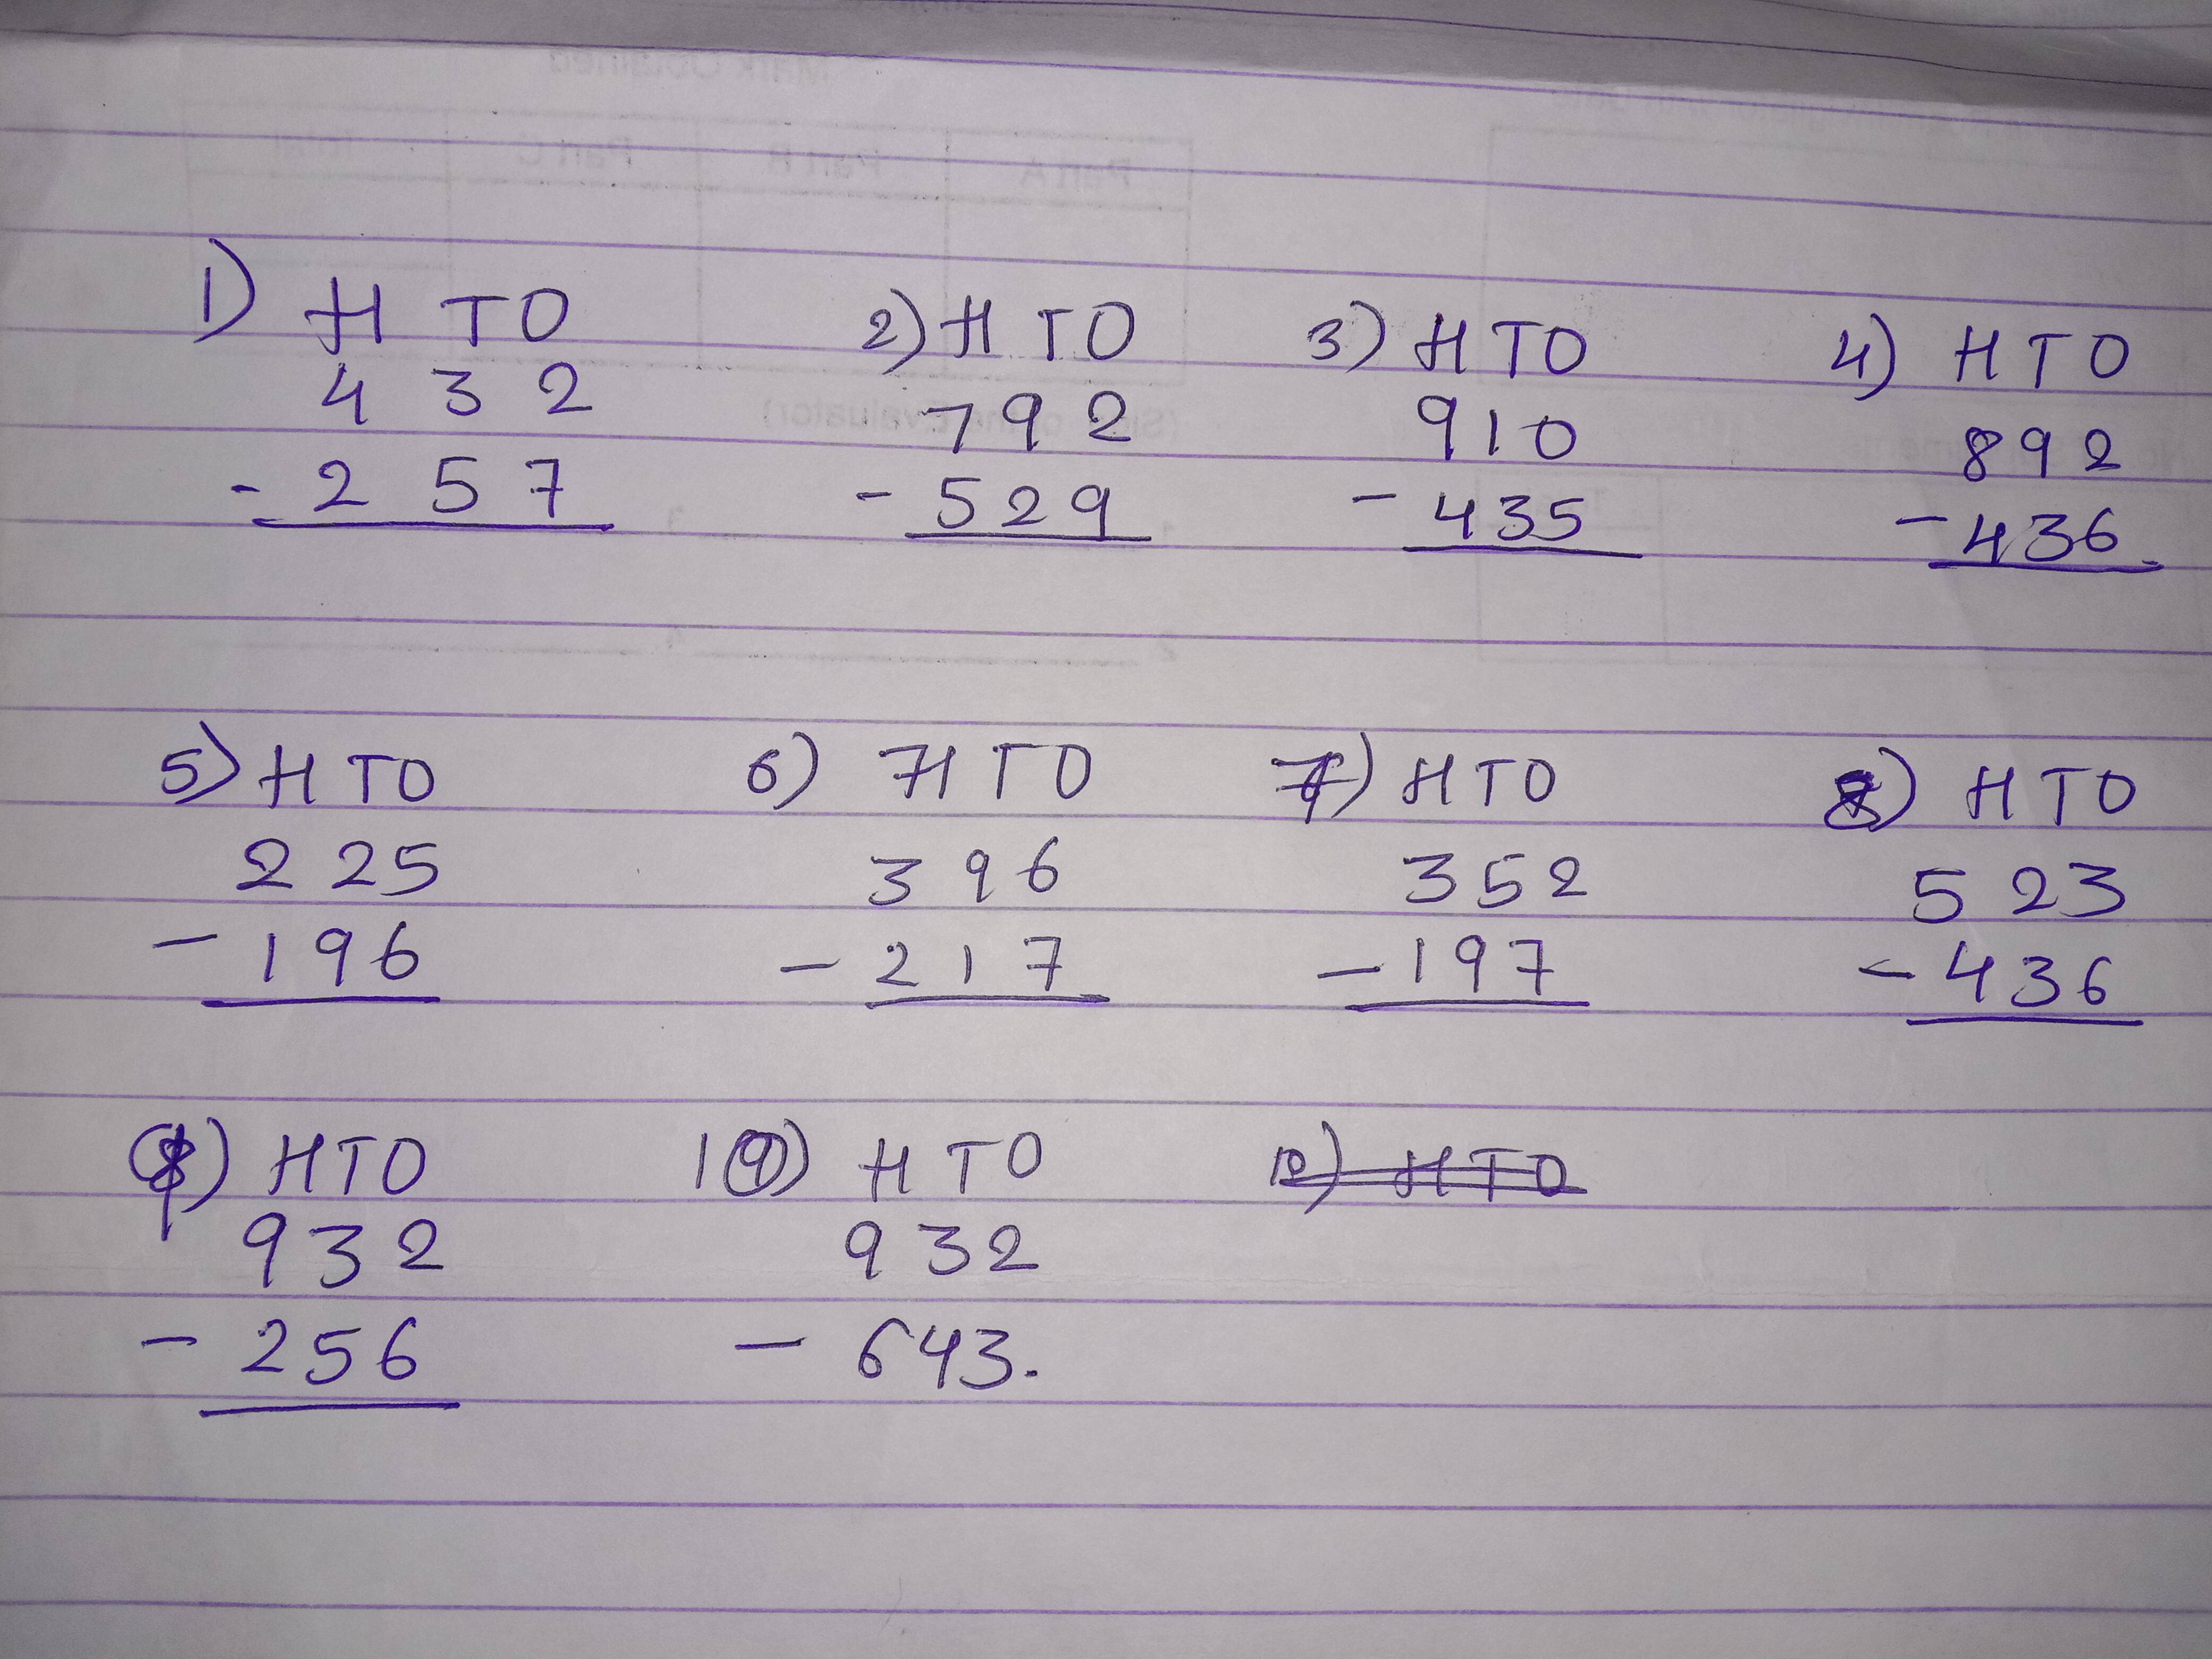 1) H T O 2) H T O 3) H T O 4) H T O
4 3 2 7 9 2 9 1 0 8 9 2
- 2 5 7 - 5 2 9 - 4 3 5 - 4 3 6
5) H T O 6) H T O 7) H T O 8) H T O
2 2 5 3 9 6 3 5 2 5 2 3
- 1 9 6 - 2 1 7 - 1 9 7 - 4 3 6
9) H T O 10) H T O 12) H T O
9 3 2 9 3 2
- 2 5 6 - 6 4 3.